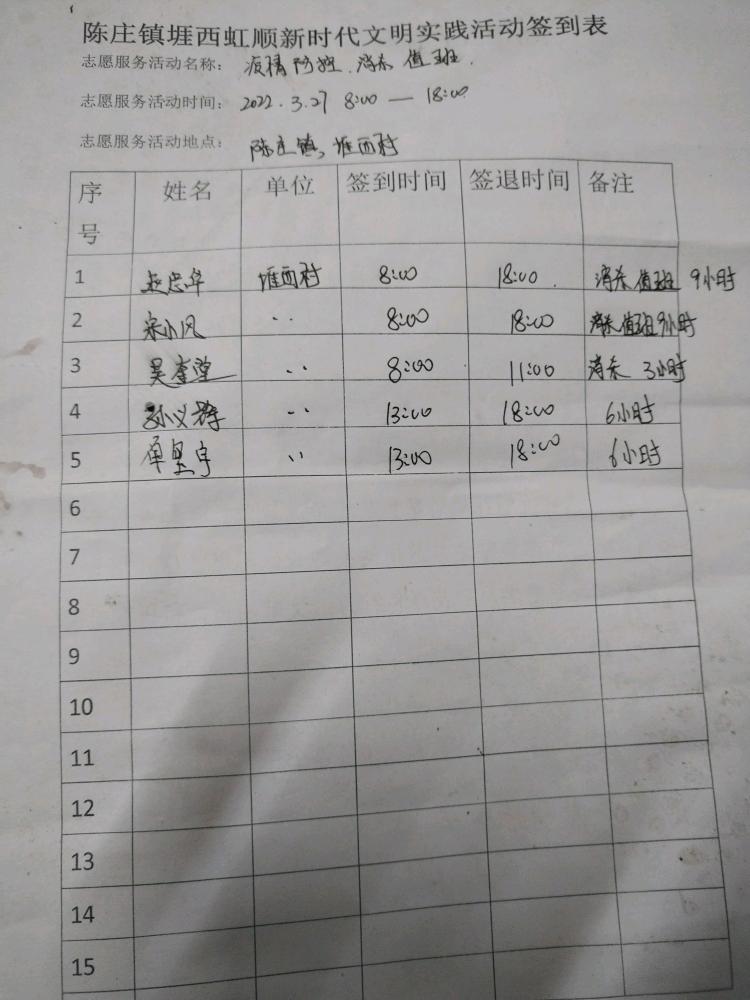 陈庄镇堐西虹顺新时代文明实践活动签到表
志愿服务活动名称：疫情防控.消杀 值班.
志愿服务活动时间：2022.3.27 8:00 — 18:00
志愿服务活动地点：陈庄镇,堐西村
序号 姓名 单位 签到时间 签退时间 备注
1 堐西村 8:00 18:00. 消杀 值班 9小时
2 宋小风 .. 8:00 18:00 消杀值班9小时
3 吴奎堂 .. 8:00 11:00 消杀 3小时
4 .. 13:00 18:00 6小时
5 .. 13:00 18:00 6小时
6
7
8
9
10
11
12
13
14
15